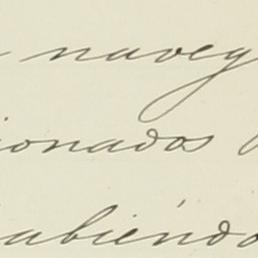 naveg
ionados
habiéndo